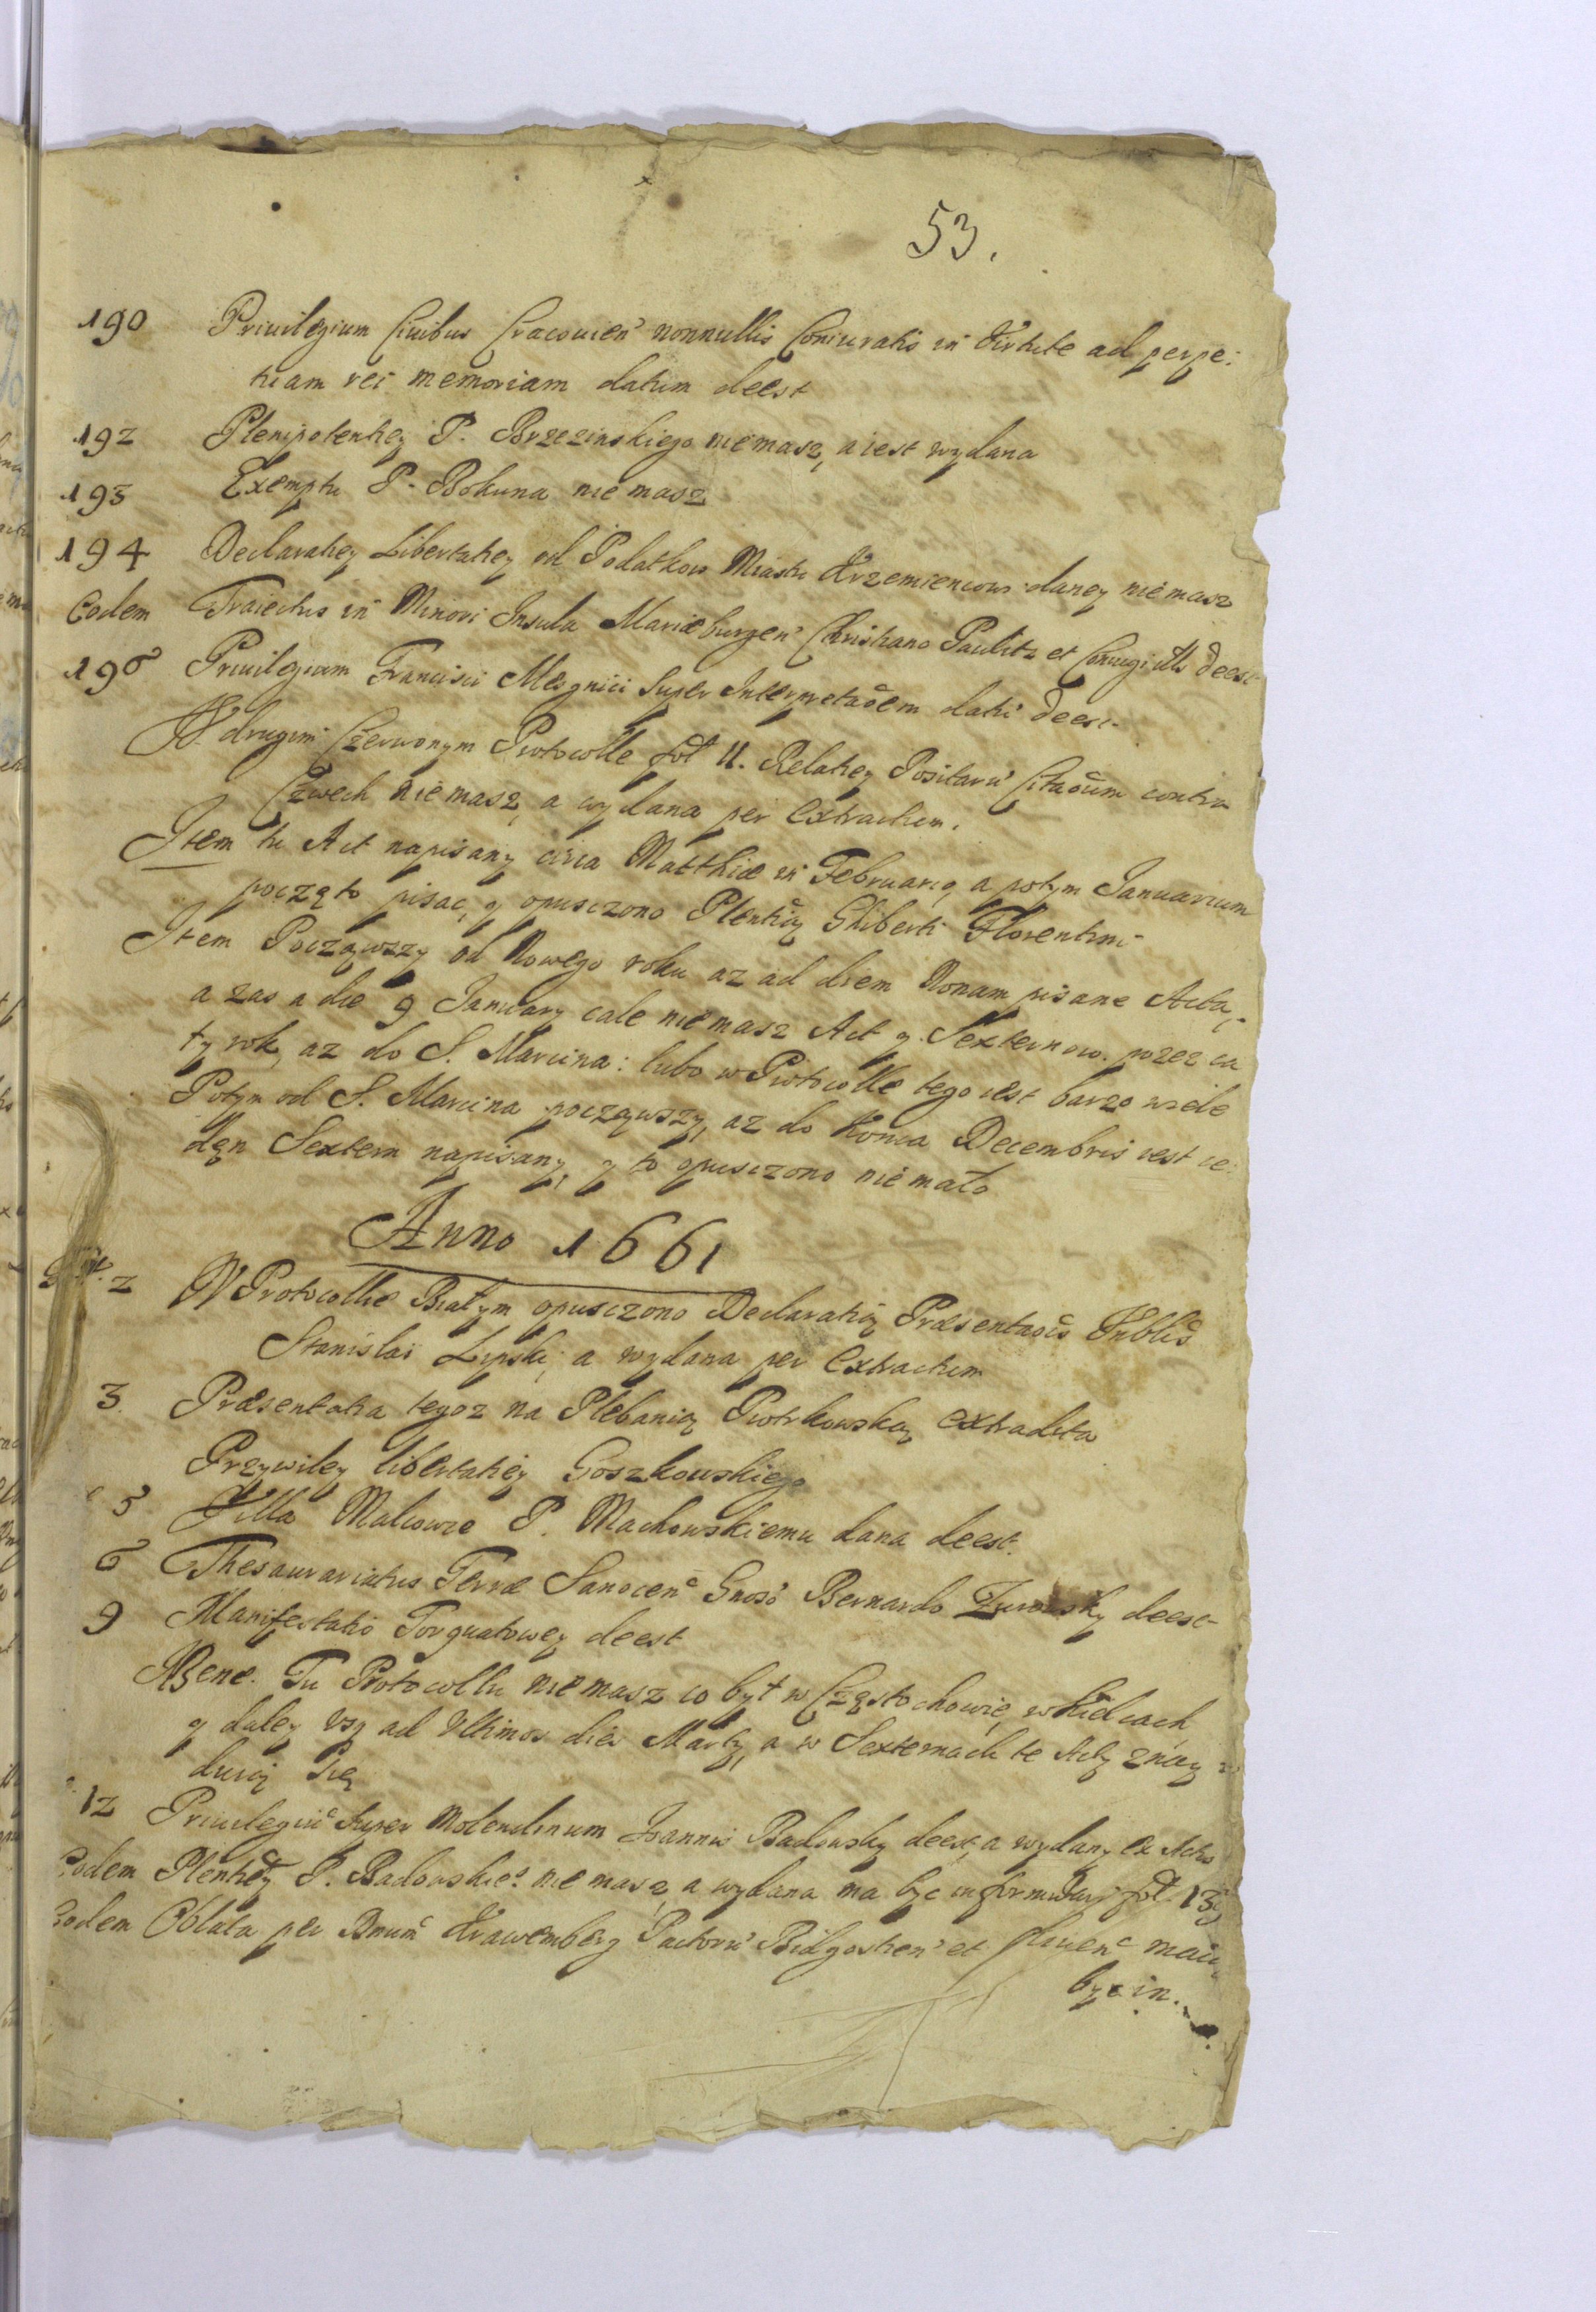 53.
190 Priuilegium Ciuibus Cracouien' nonnullis Coniuratis in Virtute ad perpe:
tuam rei memoriam datum deest
192 Plenipotentiey P. Brzezinskiego niemasz, a iest wydana
193 Exemptu P. Bokuna nie masz
194 Declaratiey Libertatiey od Podatkow Miastu Krzemiencowi daney niemasz
Eodem Traiectus in Minori Insula Mariæburgen' Christiano Paulitz et Coniugi deest
196 Priuilegium Francisci Mesgnici super Interpretaõem dati deest
W drugim Czerwonym Protocolle fol 11. Relatiey Positaru' Citaõum contra
niemasz, a wydana per Extractum.
Item tu Act napisany circa Matthiæ in February, a potym Januarium
poczęto pisac, y opusczono Plentią Ghiberti Florentini
Item Począwszy od Nowego roku az ad diem Nonam pisane Acta,
a zas a die 9 January cale niemasz Act y Sexternow. przez ca
ty rok, az do S. Marcina: lubo w Protocolle tego iest barzo wiele
Potym od S. Marcina począwszy, az do konca Decembris iest ie:
den Sextern napisany, y to opusczono niemało
Anno 1661
2 W Protocolle Białym opusczono Declaratią Præsentaõis
Stanislai Lipski, a wydana per Extractum
3. Præsentatia tegoz na Plebanią Piotrkowską extradita
Przywiley libertatiey Goszkowskiego
5 Villa Malcowie P. Machowskiemu dana deest.
6 Thesaurariatus Terræ Sanocen' Gnoso Bernardo Zurowsky deest
9 Manifestatio Torquatowey deest
NBene. Tu Protocollu niemasz co był w Częstochowie, w Kielcach
y daley usq ad Ultimos dies Marty, a w Sexternach te Acty znay
duią się
12 Priuilegiu' super Molendinum Joannis Badowsky deest, a wydany ex Actis
Eodem Plentiey P. Badowskie° nie masz, a wydana ma byc fol. 13
Eodem Oblata per Krawemberg Pactoru' Bidgostien' et maią
byc in.